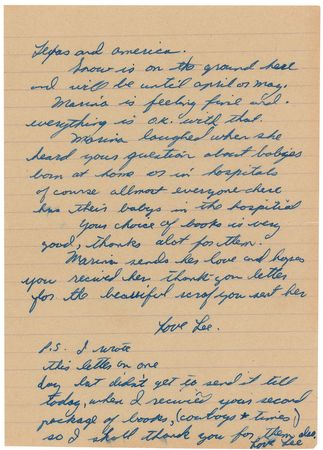 Texas and america.
Snow is on the ground here
and will be until april or may.
Marina is feeling fine and
everything is o.k. with that.
Marina laughed when she
heard your question about babyies
born at home or in hospitals
of course allmost everyone here
has their babys in the hospitial
Your choice of books is very
good; thanks alot for them.
Marina sends her love and hopes
you recived her thank you letter
for the beautiful scraf you sent her
Love Lee.
P.S. I wrote
this letter in one
day but did't get to send it till
today, when I recivied your second
package of books, (cowboys + times)
so I shall thank you for them also.
Love Lee